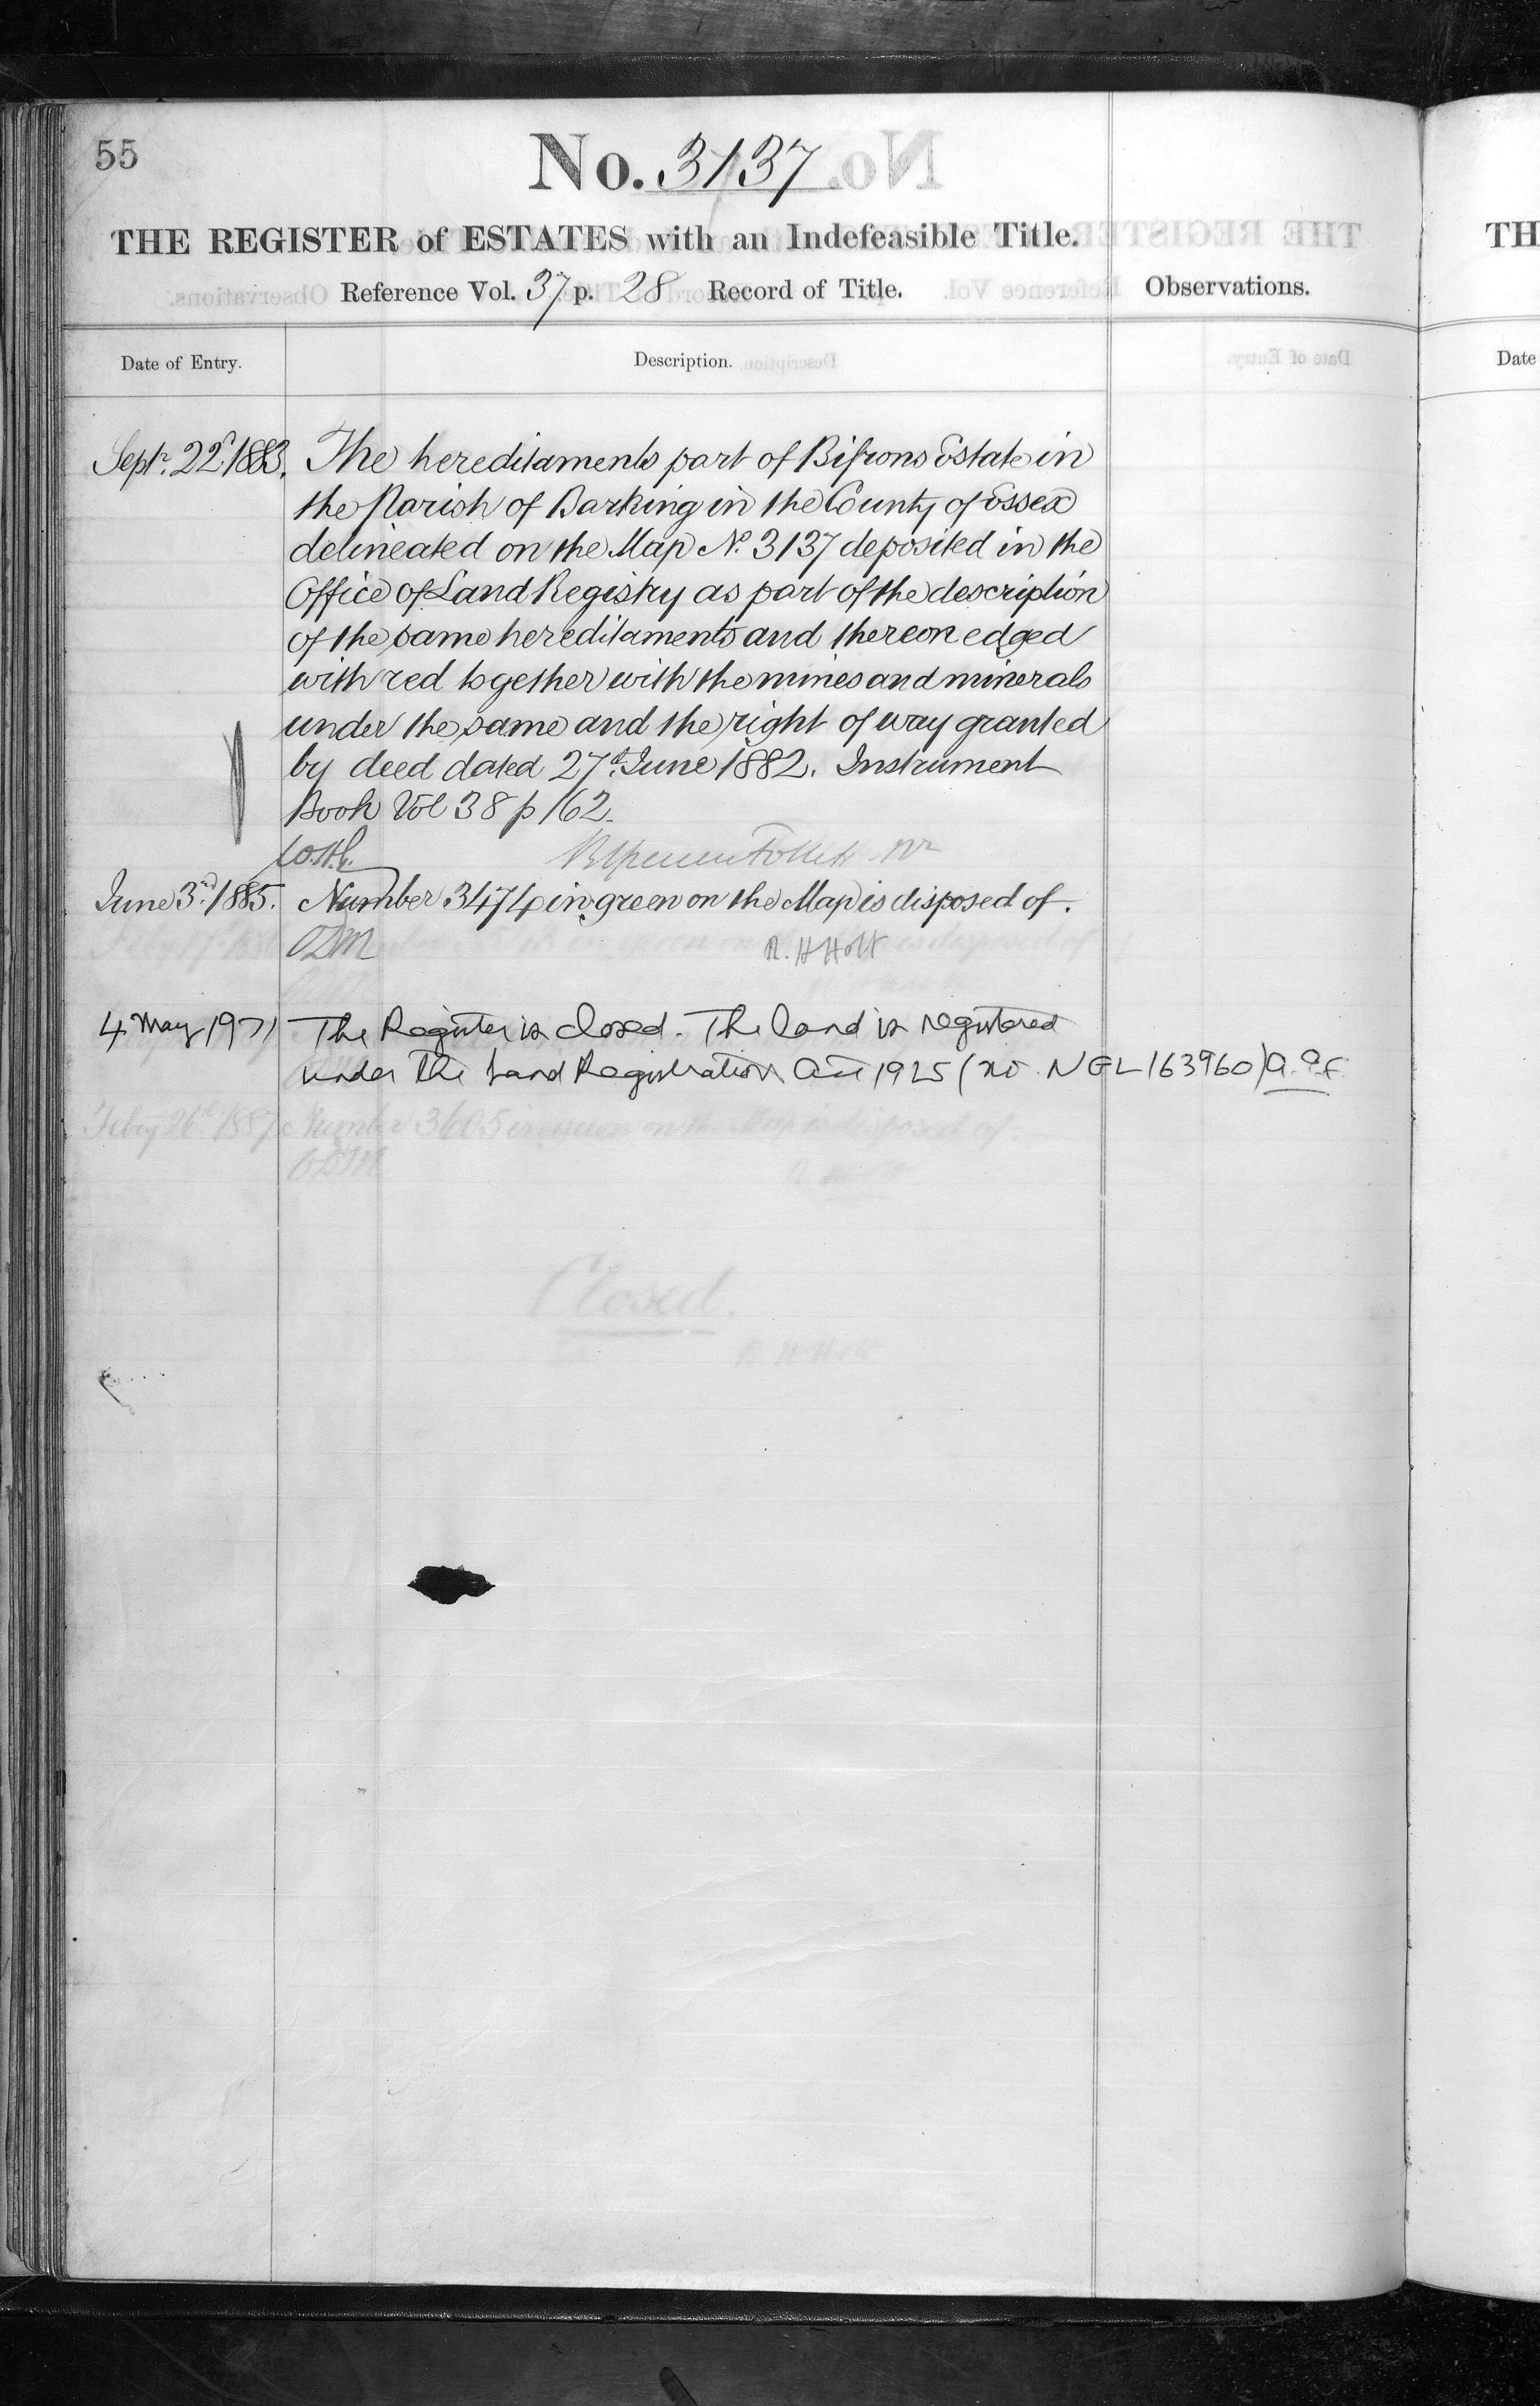 55
No. 3137
THE REGISTER of ESTATES with an Indefeasible Title.
Reference Vol. 37 p. 28 Record of Title.
Observations.
Date of Entry.
Description.
Sept.r 22d 1883. The hereditaments part of Bifrons Estate in
the Parish of Barking in the County of Essex
delineated on the Map No. 3137 deposited in the
Office of Land Registry as part of the description
of the same hereditaments and thereon edged
with red together with the mines and minerals
under the same and the right of way granted
by deed dated 27th June 1882. Instrument
Book Vol 38 p 162.
June 3rd 1885. Number 3474 in green on the Map is disposed of.
ODM R. H Holt
4 May 1971 The Register is closed. The land is registered
under the Land Registration Act 1925 (no. NGL 163960)
Feby 26th 1887 Number 3605 in green on the Map is disposed of.
Closed.
R H Holt
TH
Date